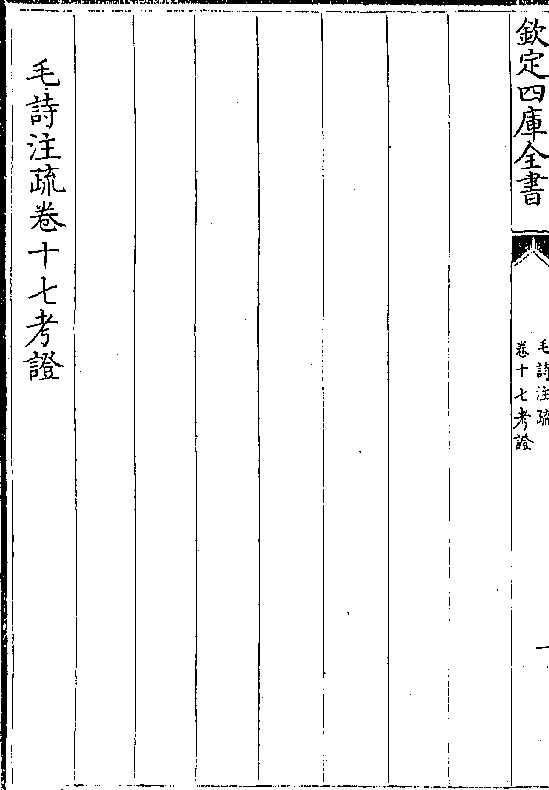 欽定四庫全書
毛詩注疏
卷十七考證
一
毛詩注疏卷十七考證